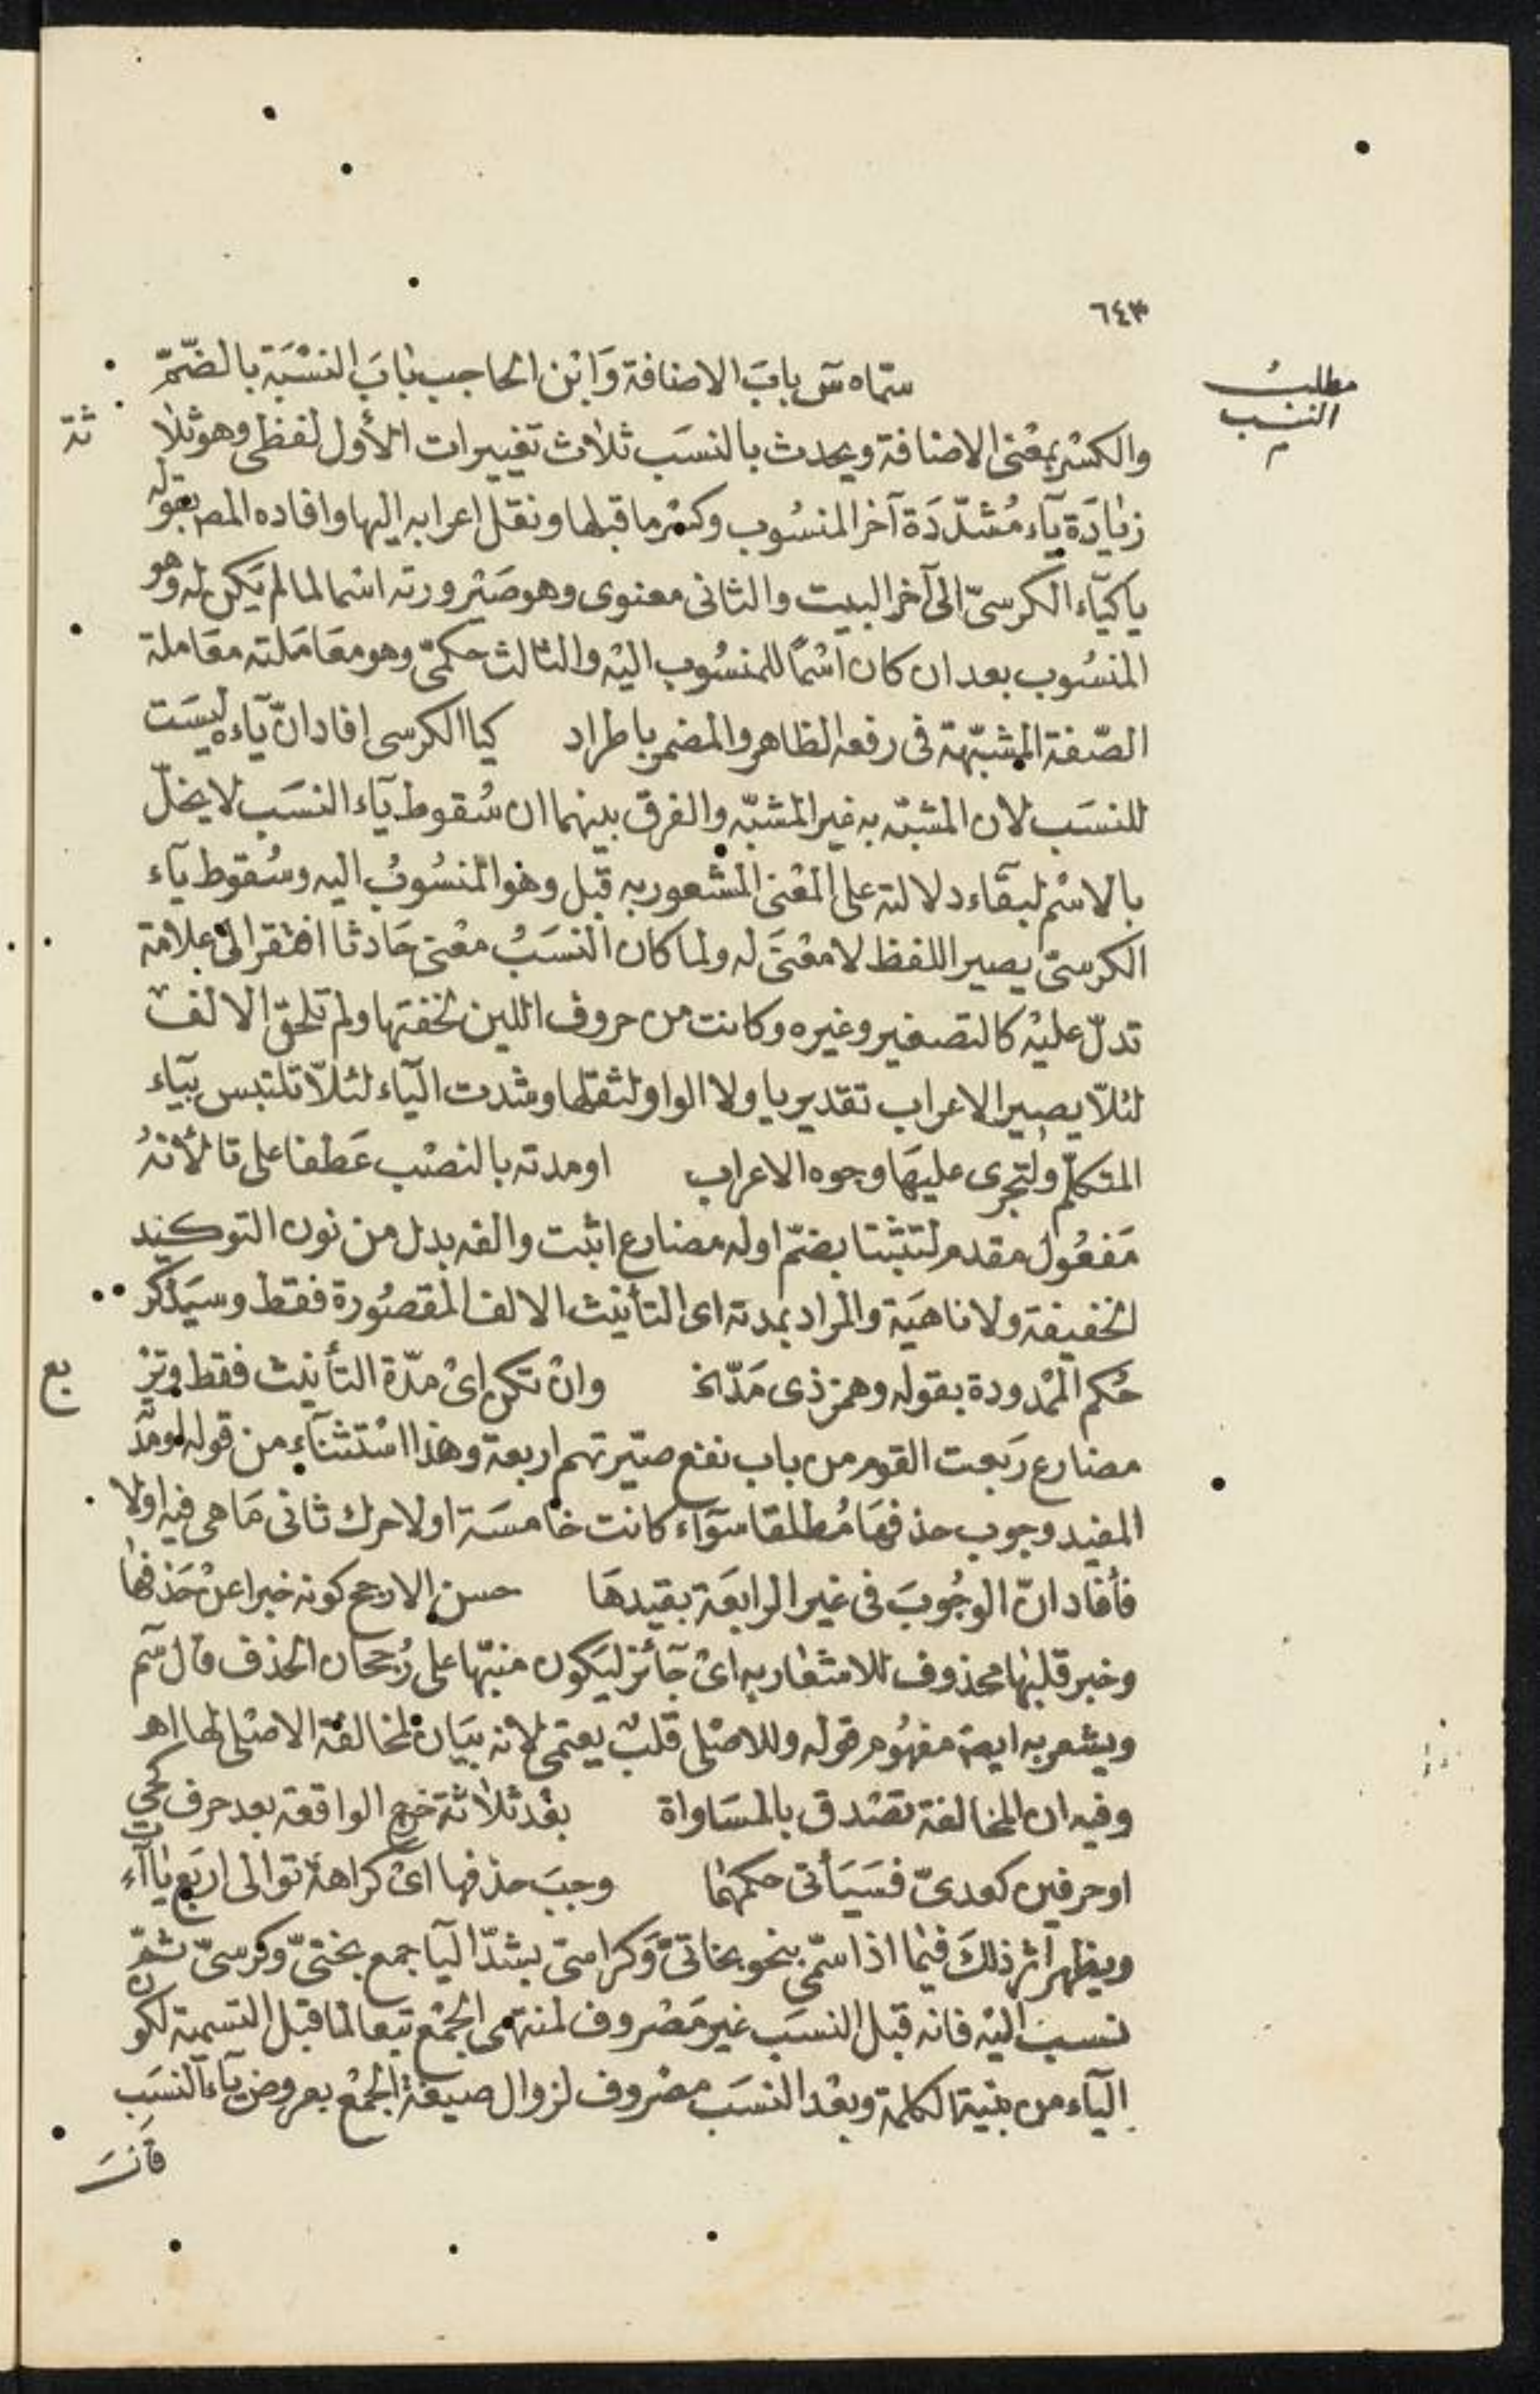 ٦٤٣
مطلب
النسب
م
سمّاه س باب الاضافة وَابْن الحاجب بابَ النسْبَة بالضّمّ
والكسْر بمعْنى الاضافة ويحدث بالنسَب ثلاث تغييرات الأول لفظى وهو ثلاثة
زيادَة ياء مُشدّدَة آخر المنسُوب وكسْر ما قبلها ونقل اعرابه اليها وافاده المص بقوله
ياء كياء الكرسىّ الى آخر البيت والثانى معنوى وهو صَيْرورته اسْما لما لم يَكن له وهو
المنسُوب بعد ان كان اسْمًا للمنسُوب اليْه والثالث حكمىّ وهو معَامَلته معَاملة
الصّفة المشبّهة فى رفعه الظاهر والمضمر باطراد كيا الكرسى افاد انّ ياءه ليسَت
للنسَب لان المشبّه به غير المشبّه والفرق بينهما ان سُقوط ياء النسَب لا يخلّ
بالاسْم لبقاء دلالته على المعْنى المشعور به قبل وهو المنسُوبُ اليه وسُقوط ياء
الكرسىّ يصير اللفظ لا معْنىَ له ولما كان النسَبُ معْنى حَادثا افتقر الى علامة
تدلّ عليْه كالتصغير وغيره وكانت من حروف اللين لخفتها ولم تلحق الالف
لئلاّ يصير الاعراب تقديريا ولا الواو لثقلها وشدت الياء لئلاّ تلتبس بياء
المتكلّم ولتجرى عليهَا وجوه الاعراب او مدته بالنصْب عَطفا على تا لأنهُ
مَفعُول مقدم لتثبتا بضمّ اوله مضارع اثبت والفه بدل من نون التوكيد
الخفيفة ولا ناهيَة والمراد بمدته اى التأنيث الالف المقصُورة فقط وسيَذكر
حُكم الممْدودة بقوله وهمز ذى مَدّ الخ وانْ تكن اىْ مدّة التأنيث فقط وتربع
مضارع رَبعت القوم من باب نفع صيّرتهم اربعة وهذا اسْتثناء من قوله او مدّ
المفيد وجوب حذفهَا مُطلقا سَوَاء كانت خامسَة او لا حرك ثانى مَا هى فيه اولا
فأفاد انّ الوجُوبَ فى غير الرابعَة بقيدهَا حسن الارجح كونه خبرا عنْ حَذفها
وخبر قلبها محذوف للاشعار به اىْ جَائز ليَكون منبّها على رُجحان الحذف قال سم
ويشعر به ايضا مفهُوم قوله وللاصْلى قلبٌ يعتمى لانه بيَان لمخالفة الاصْلى لها اهـ
وفيه ان المخالفة تصْدق بالمسَاواة بعْد ثلاثة خرج الواقعة بعد حرف كحى
او حرفين كعدىّ فسَيَأتى حكمهُما وجبَ حذفها اىْ كراهة توالى اربَع ياآت
ويظهر أثر ذلكَ فيْما اذا سمّى بنحو بخاتىّ وَكراسىّ بشدّ اليا جمع بختىّ وكرسىّ ثمّ
نسبَ اليْه فانه قبل النسَب غير مَصْروف لمنتهى الجمْع تبعا لما قبل التسمية لكون
الياء من بنية الكلمة وبعْد النسَب مصْروف لزوال صيغة الجمْع بعروض ياء النسَب